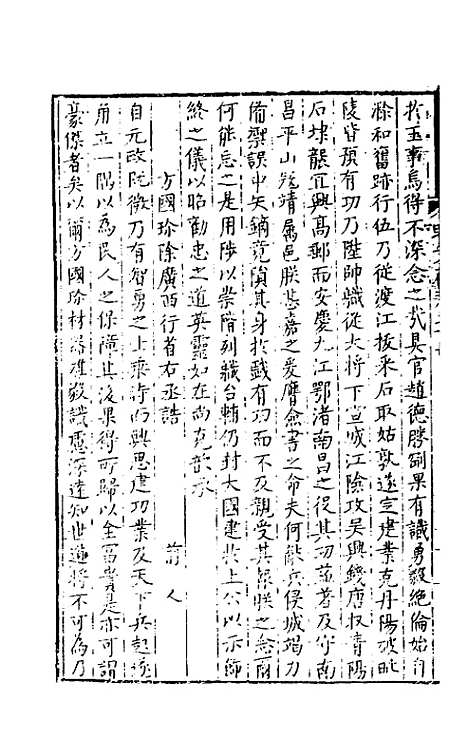 於王事烏得不深念之哉具官趙德勝剛果有識勇毅絕倫始自
滁和奮跡行伍乃從渡江拔采石取姑孰遂定建業克丹陽破毗
陵皆預有功乃陞帥職從大將下宣城江陰攻吳興錢唐収青陽
石埭龍江宜興高郵而安慶九江鄂渚南昌之役其功益著及守南
昌平山寇靖属邑朕甚嘉之爰膺僉書之命夫何敵兵侵城竭力
備禦誤中矢鏑竟隕其身於戲有功而不及親受其榮朕之念爾
何能忘之是用陟以崇階列職台輔仍封大國建於上公以示飾
終之儀以昭勸忠之道英靈如在尚克歆承
方國珍除廣西行省右丞誥
前人
自元政既微乃有智勇之士乘時而興思建功業及天下兵起遂
角立一隅以為民人之保障其後果得所歸以全富貴是亦可謂
豪傑者矣以爾方國珍材器雄毅識慮深遠知世道將不可為乃